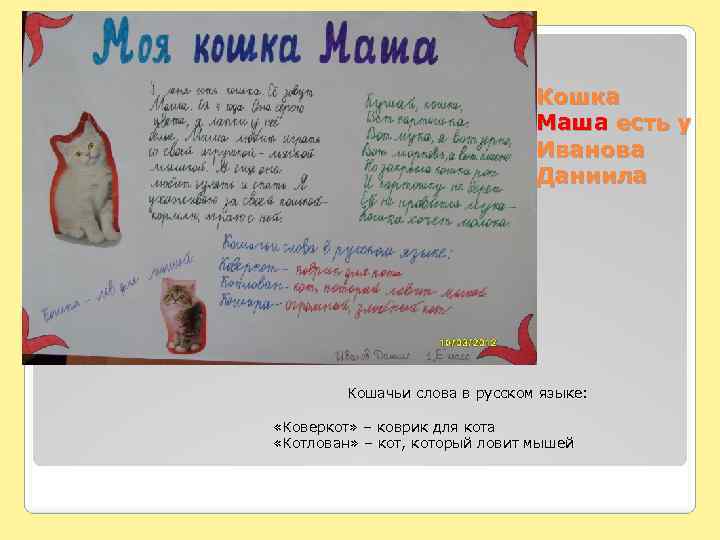 Моя кошка Маша
У меня есть кошка. Её зовут
Маша. Ей 2 года. Она серого
цвета, а лапки у неё
белые. Маша любит играть
со своей игрушкой - мягкой
мышкой. А ещё она
любит гулять и спать. Я
ухаживаю за своей кошкой -
кормлю, играю с ней.
Кушай, кошка,
Есть картошка,
Вот мука, а вот зерно,
Вот морковь, а вот
Но закрыла кошка рот
И картошку не берёт
Ей не нравится мука -
Кошка хочет молока.
Кошачьи слова в русском языке:
Коверкот - коврик для кота
Котлован - кот, который ловит мышей
Кошмар - огромный, злобный кот
Кошка - лев для мышей
10/03/2012
Иванов Данил 1 класс
Кошка
Маша есть у
Иванова
Даниила
Кошачьи слова в русском языке:
«Коверкот» – коврик для кота
«Котлован» – кот, который ловит мышей